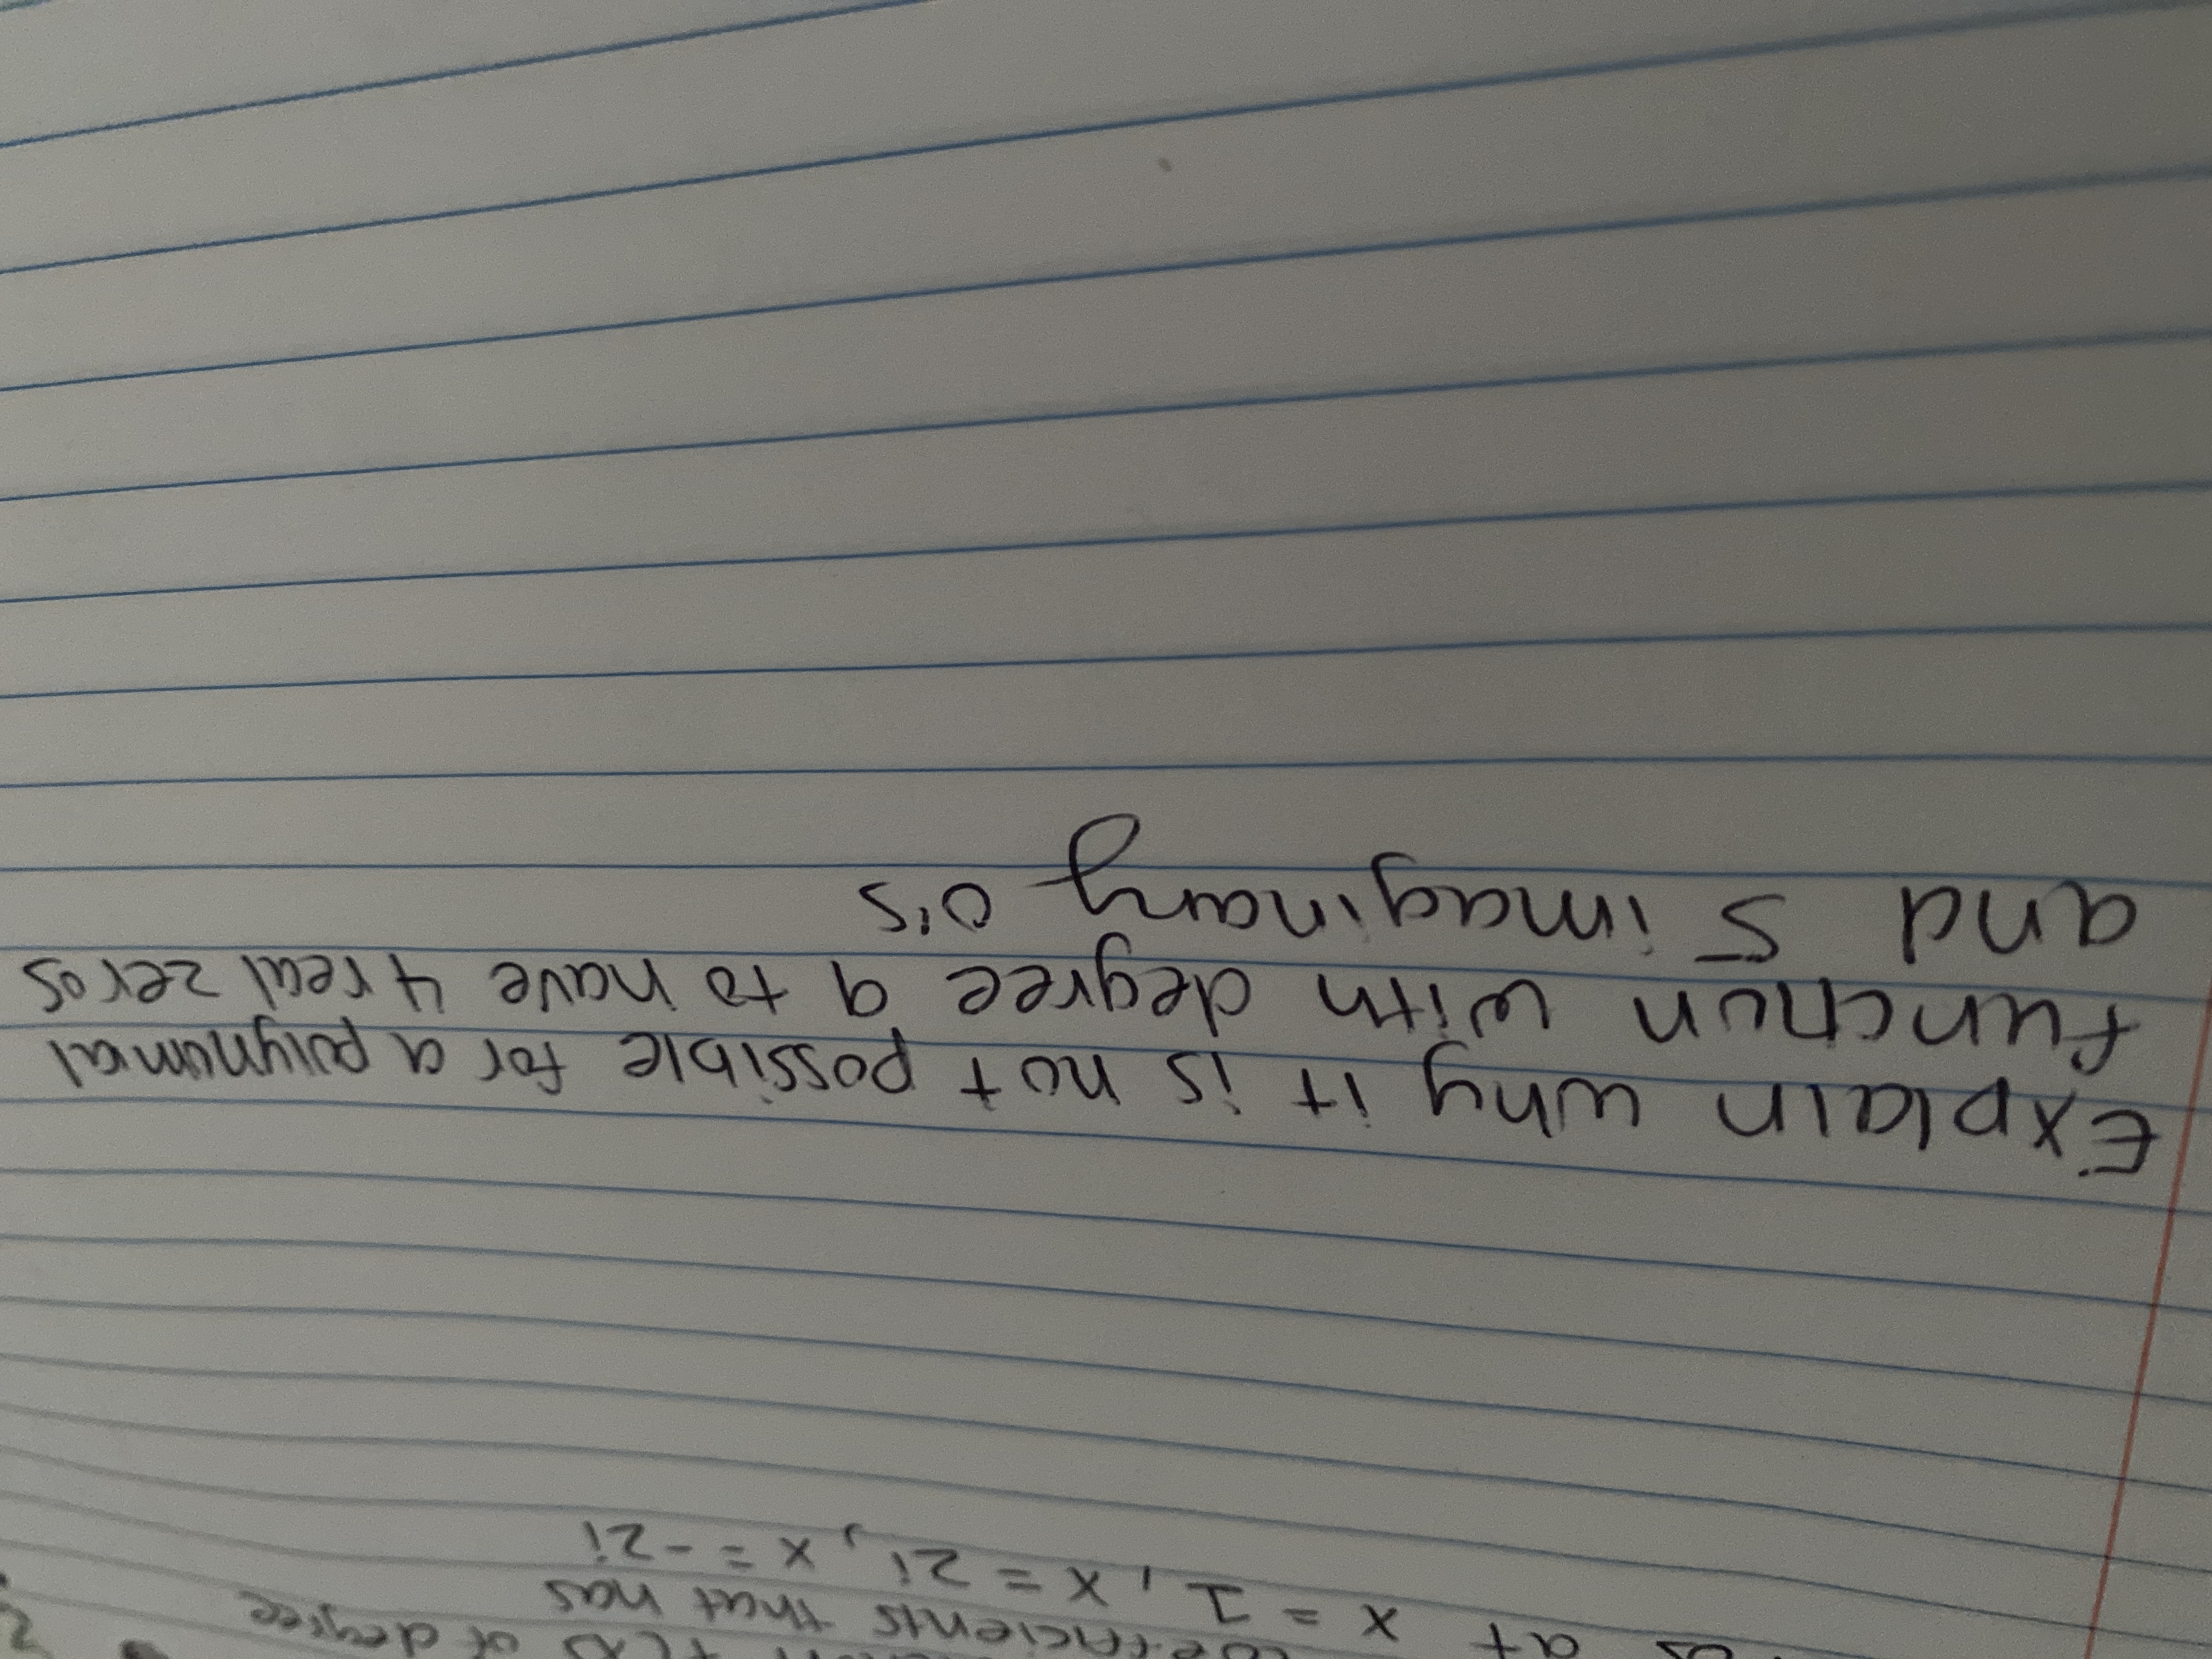 f(x) of degree
coefficients that has
at x = 1, x = 2i, x = -2i
Explain why it is not possible for a polynomial
function with degree 9 to have 4 real zeros
and 5 imaginary 0's